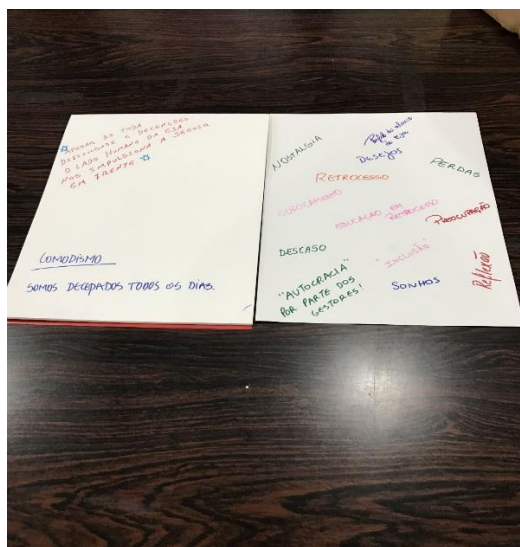 APESAR DE TODA
DIFICULDADE E DECEPÇÕES
O LADO HUMANO DA EJA
NOS IMPULSIONA A SEGUIR
EM FRENTE.
COMODISMO
SOMOS DECEPADOS TODOS OS DIAS.
NOSTALGIA
do aluno
da EJA
DESEJOS
PERDAS
RETROCESSO
SUFOCAMENTO
EDUCAÇÃO EM
RETROCESSO
PREOCUPAÇÃO
DESCASO
"INCLUSÃO"
Reflexão
"AUTOCRACIA"
POR PARTE DOS
GESTORES!
SONHOS